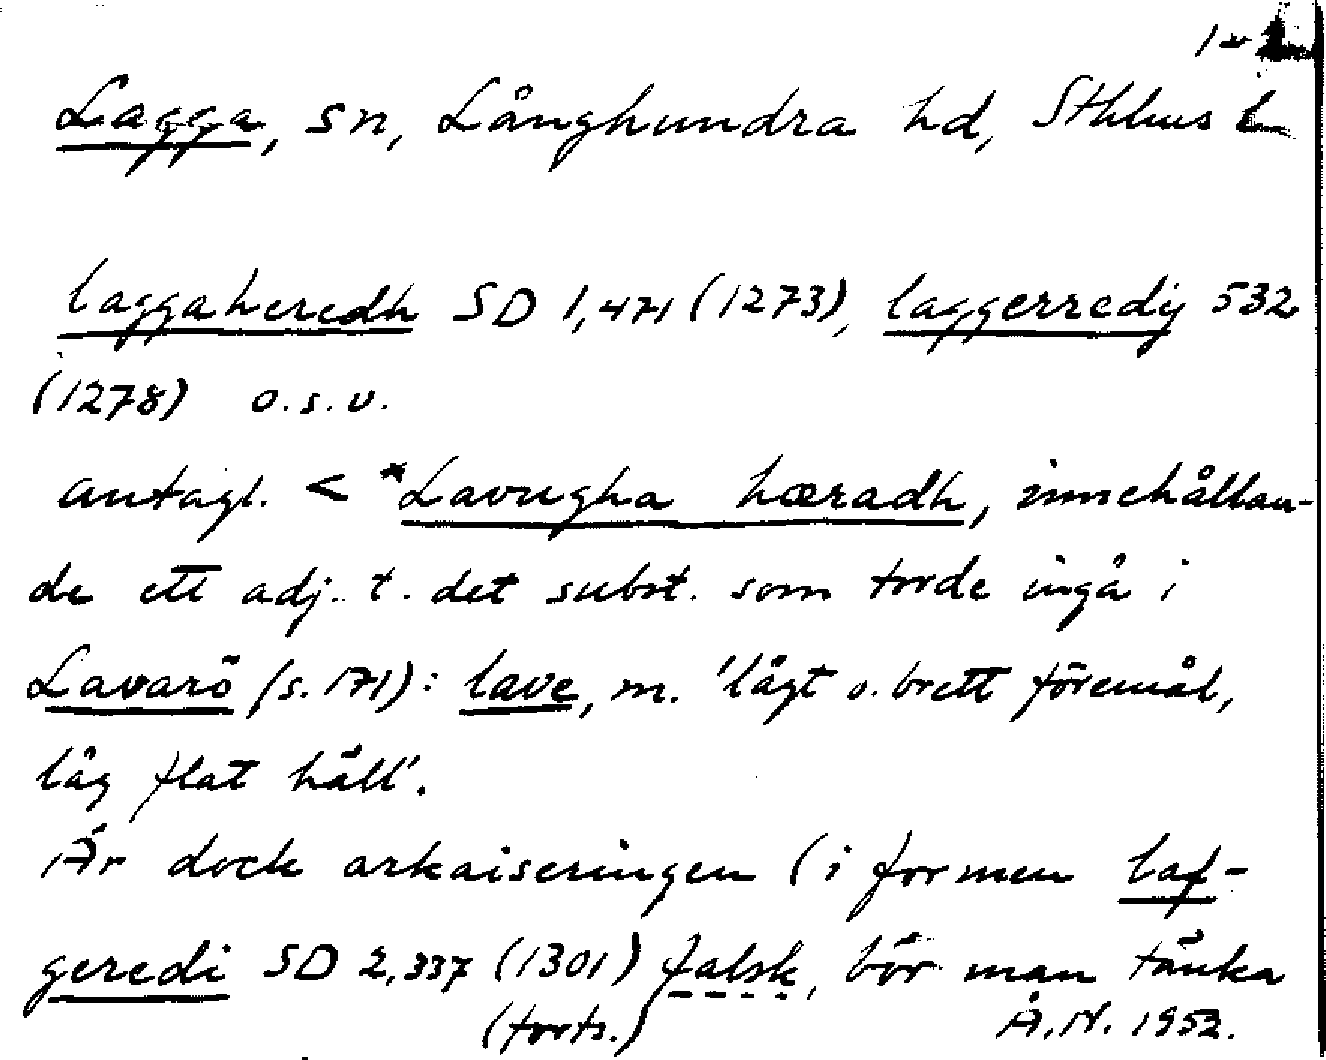 Lagga, sn, Långhundra hd, Sthlms l
laggaheredh SD 1,471 (1273), laggerredij 532
(1278) o.s.v.
antagl. < *Lavugha hæradh, innehållan-
de ett adj. t. det subst. som torde ingå i
Lavarö (s. 171): lave, m. 'lågt o. brett föremål,
låg flat häll'.
Är dock arkaiseringen (i formen laf-
geredi SD 2,337 (1301) falsk, bör man tänka
(forts.) Å.N. 1952.